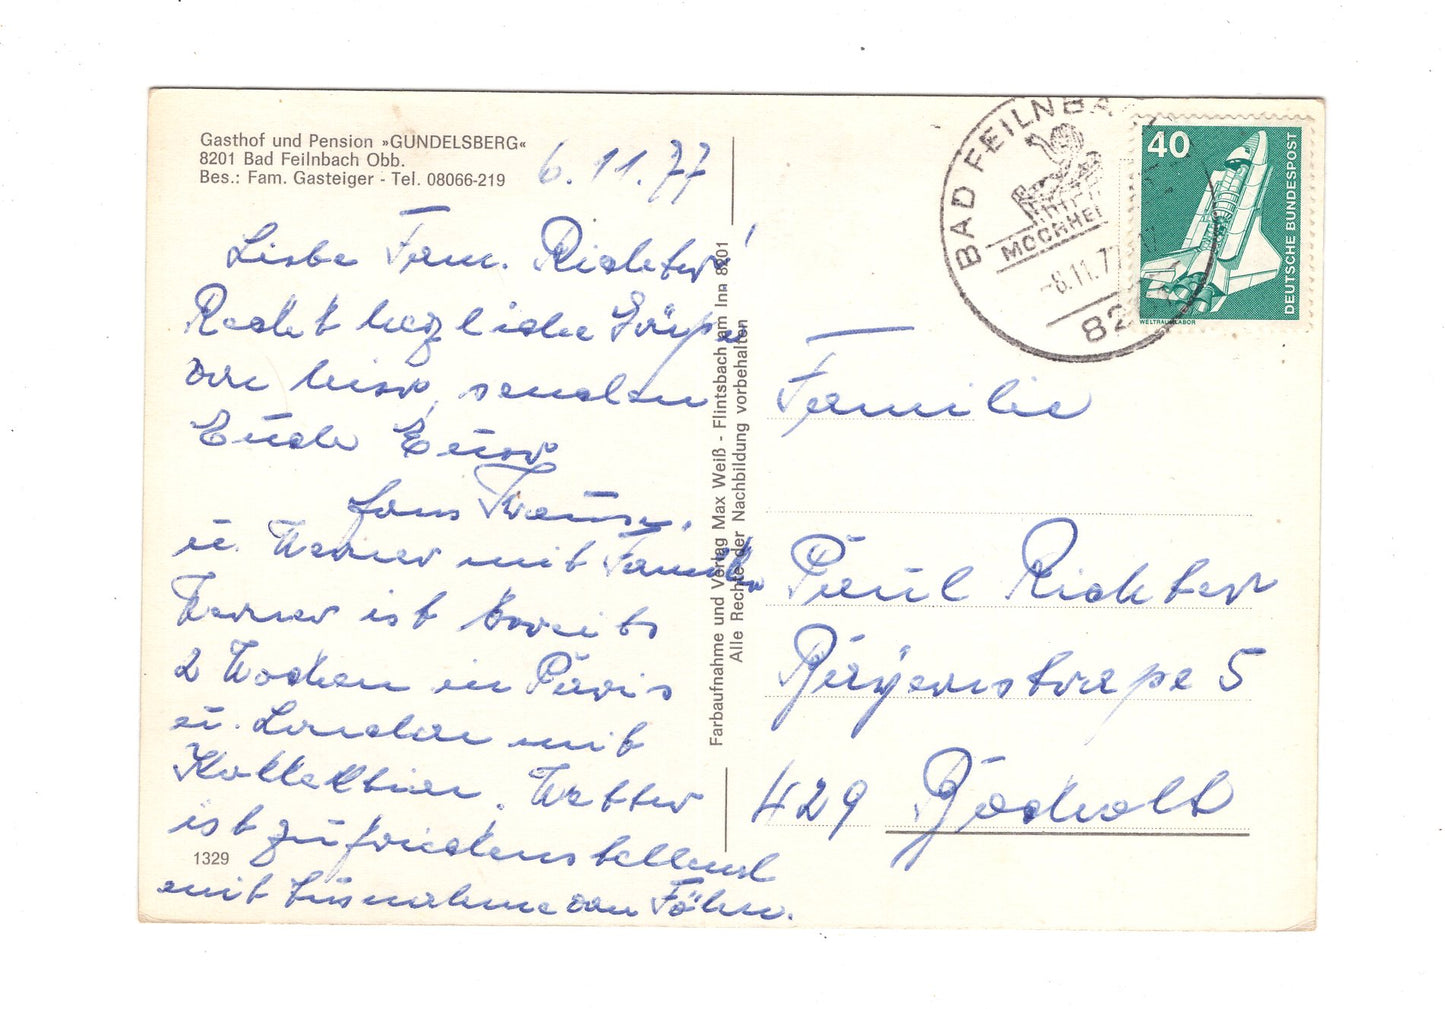 Gasthof und Pension »GUNDELSBERG«
8201 Bad Feilnbach Obb.
Bes.: Fam. Gasteiger - Tel. 08066-219
6.11.77
Liebe Fam. Richter!
Recht herzliche Grüße
von hier, senden
Euch Eure
Hans Krause.
u. Werner mit Familie
Werner ist bereits
2 Wochen in Paris
u. London mit
Kollektion. Wetter
ist zufriedenstellend
mit Ausnahme von Föhn.
1329
Farbaufnahme und Verlag Max Weiß - Flintsbach am Inn 8201
Alle Rechte der Nachbildung vorbehalten
BAD FEILNBACH
MOORHEI
-8.11.7
82
40
DEUTSCHE BUNDESPOST
WELTRAUMLABOR
Familie
Paul Richter
Bayernstraße 5
429 Bocholt